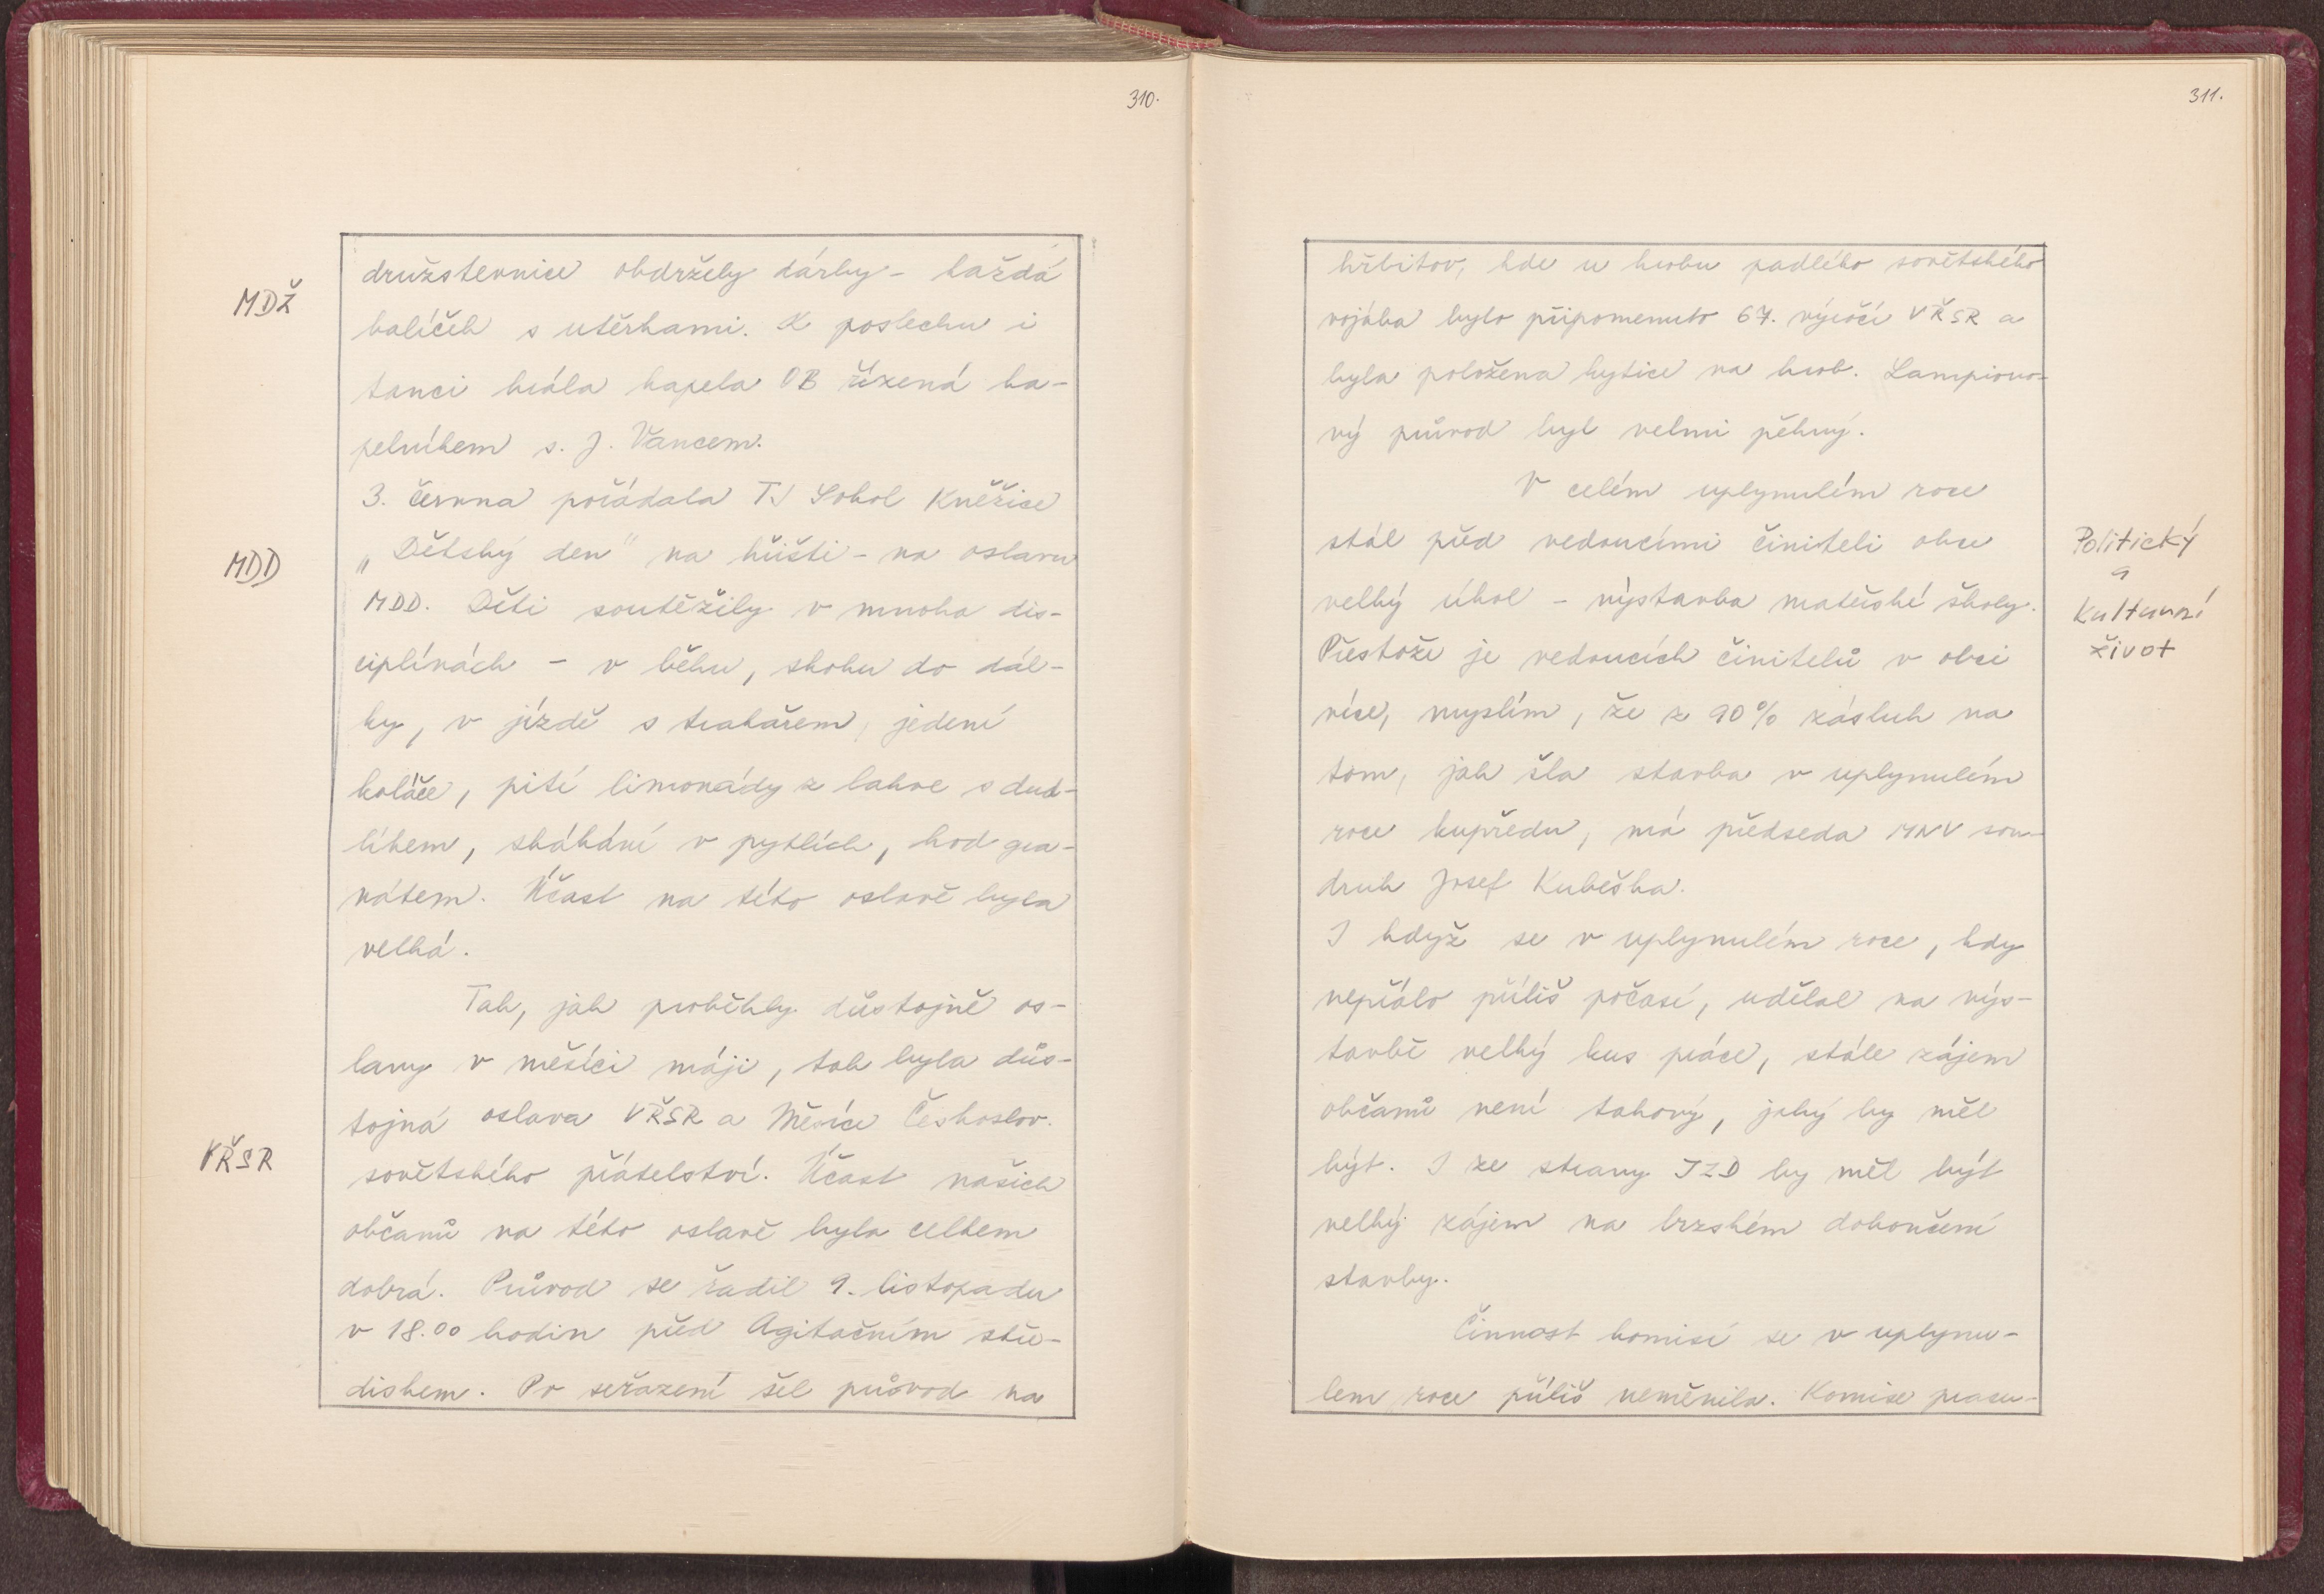 310.
MDŽ
družstevnice obdržely dárky - každá
balíček s utěrkami. K poslechu i
tanci hrála kapela OB řízená ka-
pelníkem s. J. Vancem.
3. června pořádala TJ Sokol Kněžice
MDD
„Dětský den" na hřišti - na oslavu
MDD. Děti soutěžily v mnoha dis-
ciplínách - v běhu, skoku do dál-
ky, v jízdě s trakařem, jedení
koláče, pití limonády z lahve s dud-
líkem, skákání v pytlích, hod gra-
nátem. Účast na této oslavě byla
velká.
Tak, jak proběhly důstojně os-
lavy v měsíci máji, tak byla důs-
tojná oslava VŘSR a Měsíce Českoslov.
VŘSR
sovětského přátelství. Účast našich
občanů na této oslavě byla celkem
dobrá. Průvod se řadil 9. listopadu
v 18.00 hodin před Agitačním stře-
diskem. Po seřazení šel průvod na
311.
hřbitov, kde u hrobu padlého sovětského
vojáka bylo připomenuto 67. výročí VŘSR a
byla položena kytice na hrob. Lampiono-
vý průvod byl velmi pěkný.
V celém uplynulém roce
stál před vedoucími činiteli obce
Politický
a
kulturní
život
velký úkol - výstavba mateřské školy.
Přestože je vedoucích činitelů v obci
více, myslím, že z 90% zásluh na
tom, jak šla stavba v uplynulém
roce kupředu, má předseda MNV sou-
druh Josef Kubeška.
I když se v uplynulém roce, kdy
nepřálo příliš počasí, udělal na výs-
tavbě velký kus práce, stále zájem
občanů není takový, jaký by měl
být. I ze strany JZD by měl být
velký zájem na brzském dokončení
stavby.
Činnost komisí se v uplynu-
lem roce příliš neměnila. Komise pracu-